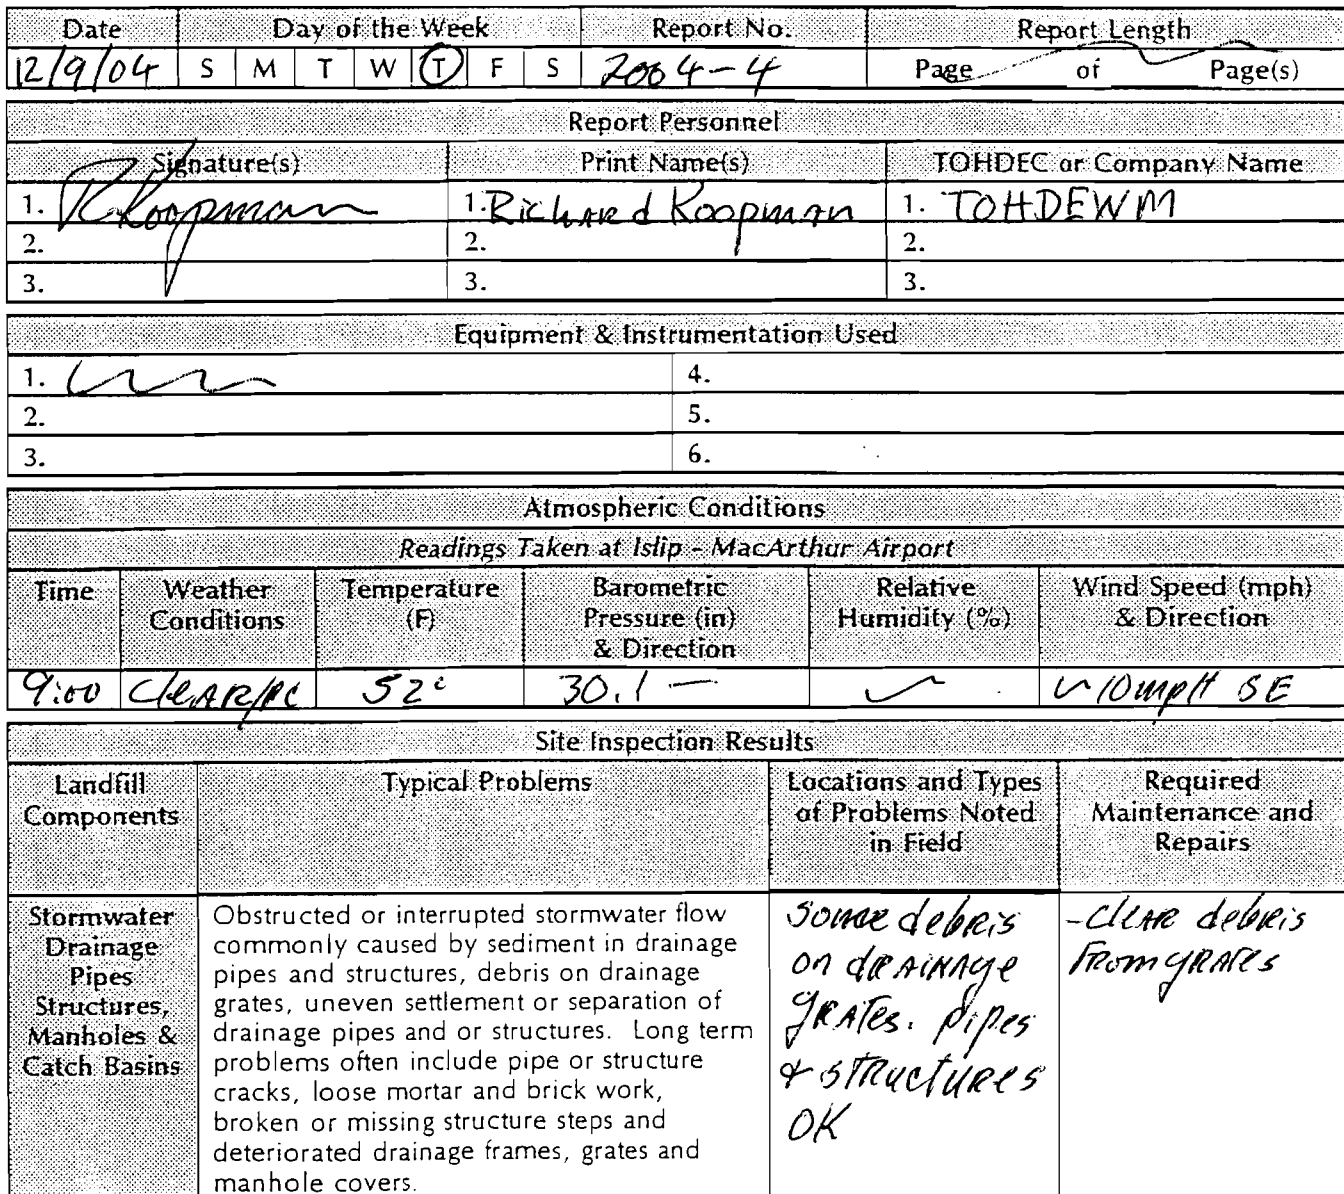 Date Day of the Week Report No. Report Length
12/9/04 S M T W T F S 2004-4 Page of Page(s)
Report Personnel
Signature(s) Print Name(s) TOHDEC or Company Name
1. R Koopman 1. Richard Koopman 1. TOHDEWM
2. 2. 2.
3. 3. 3.
Equipment & Instrumentation Used
1. 4.
2. 5.
3. 6.
Atmospheric Conditions
Readings Taken at Islip - MacArthur Airport
Time Weather Conditions Temperature (F) Barometric Pressure (in) & Direction Relative Humidity (%) Wind Speed (mph) & Direction
9:00 Clear/PC 52° 30.1 — ~10mpH SE
Site Inspection Results
Landfill Components Typical Problems Locations and Types of Problems Noted in Field Required Maintenance and Repairs
Stormwater
Drainage
Pipes
Structures,
Manholes &
Catch Basins
Obstructed or interrupted stormwater flow
commonly caused by sediment in drainage
pipes and structures, debris on drainage
grates, uneven settlement or separation of
drainage pipes and or structures. Long term
problems often include pipe or structure
cracks, loose mortar and brick work,
broken or missing structure steps and
deteriorated drainage frames, grates and
manhole covers.
Some debris
on drainage
grates. pipes
& structures
OK
-Clear debris
From grates